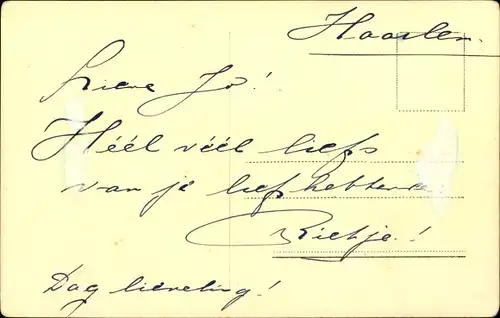 Haarlem.
Lieve Jo!
Héél véél liefs
van je liefhebbende
Rietje!
Dag lieveling!